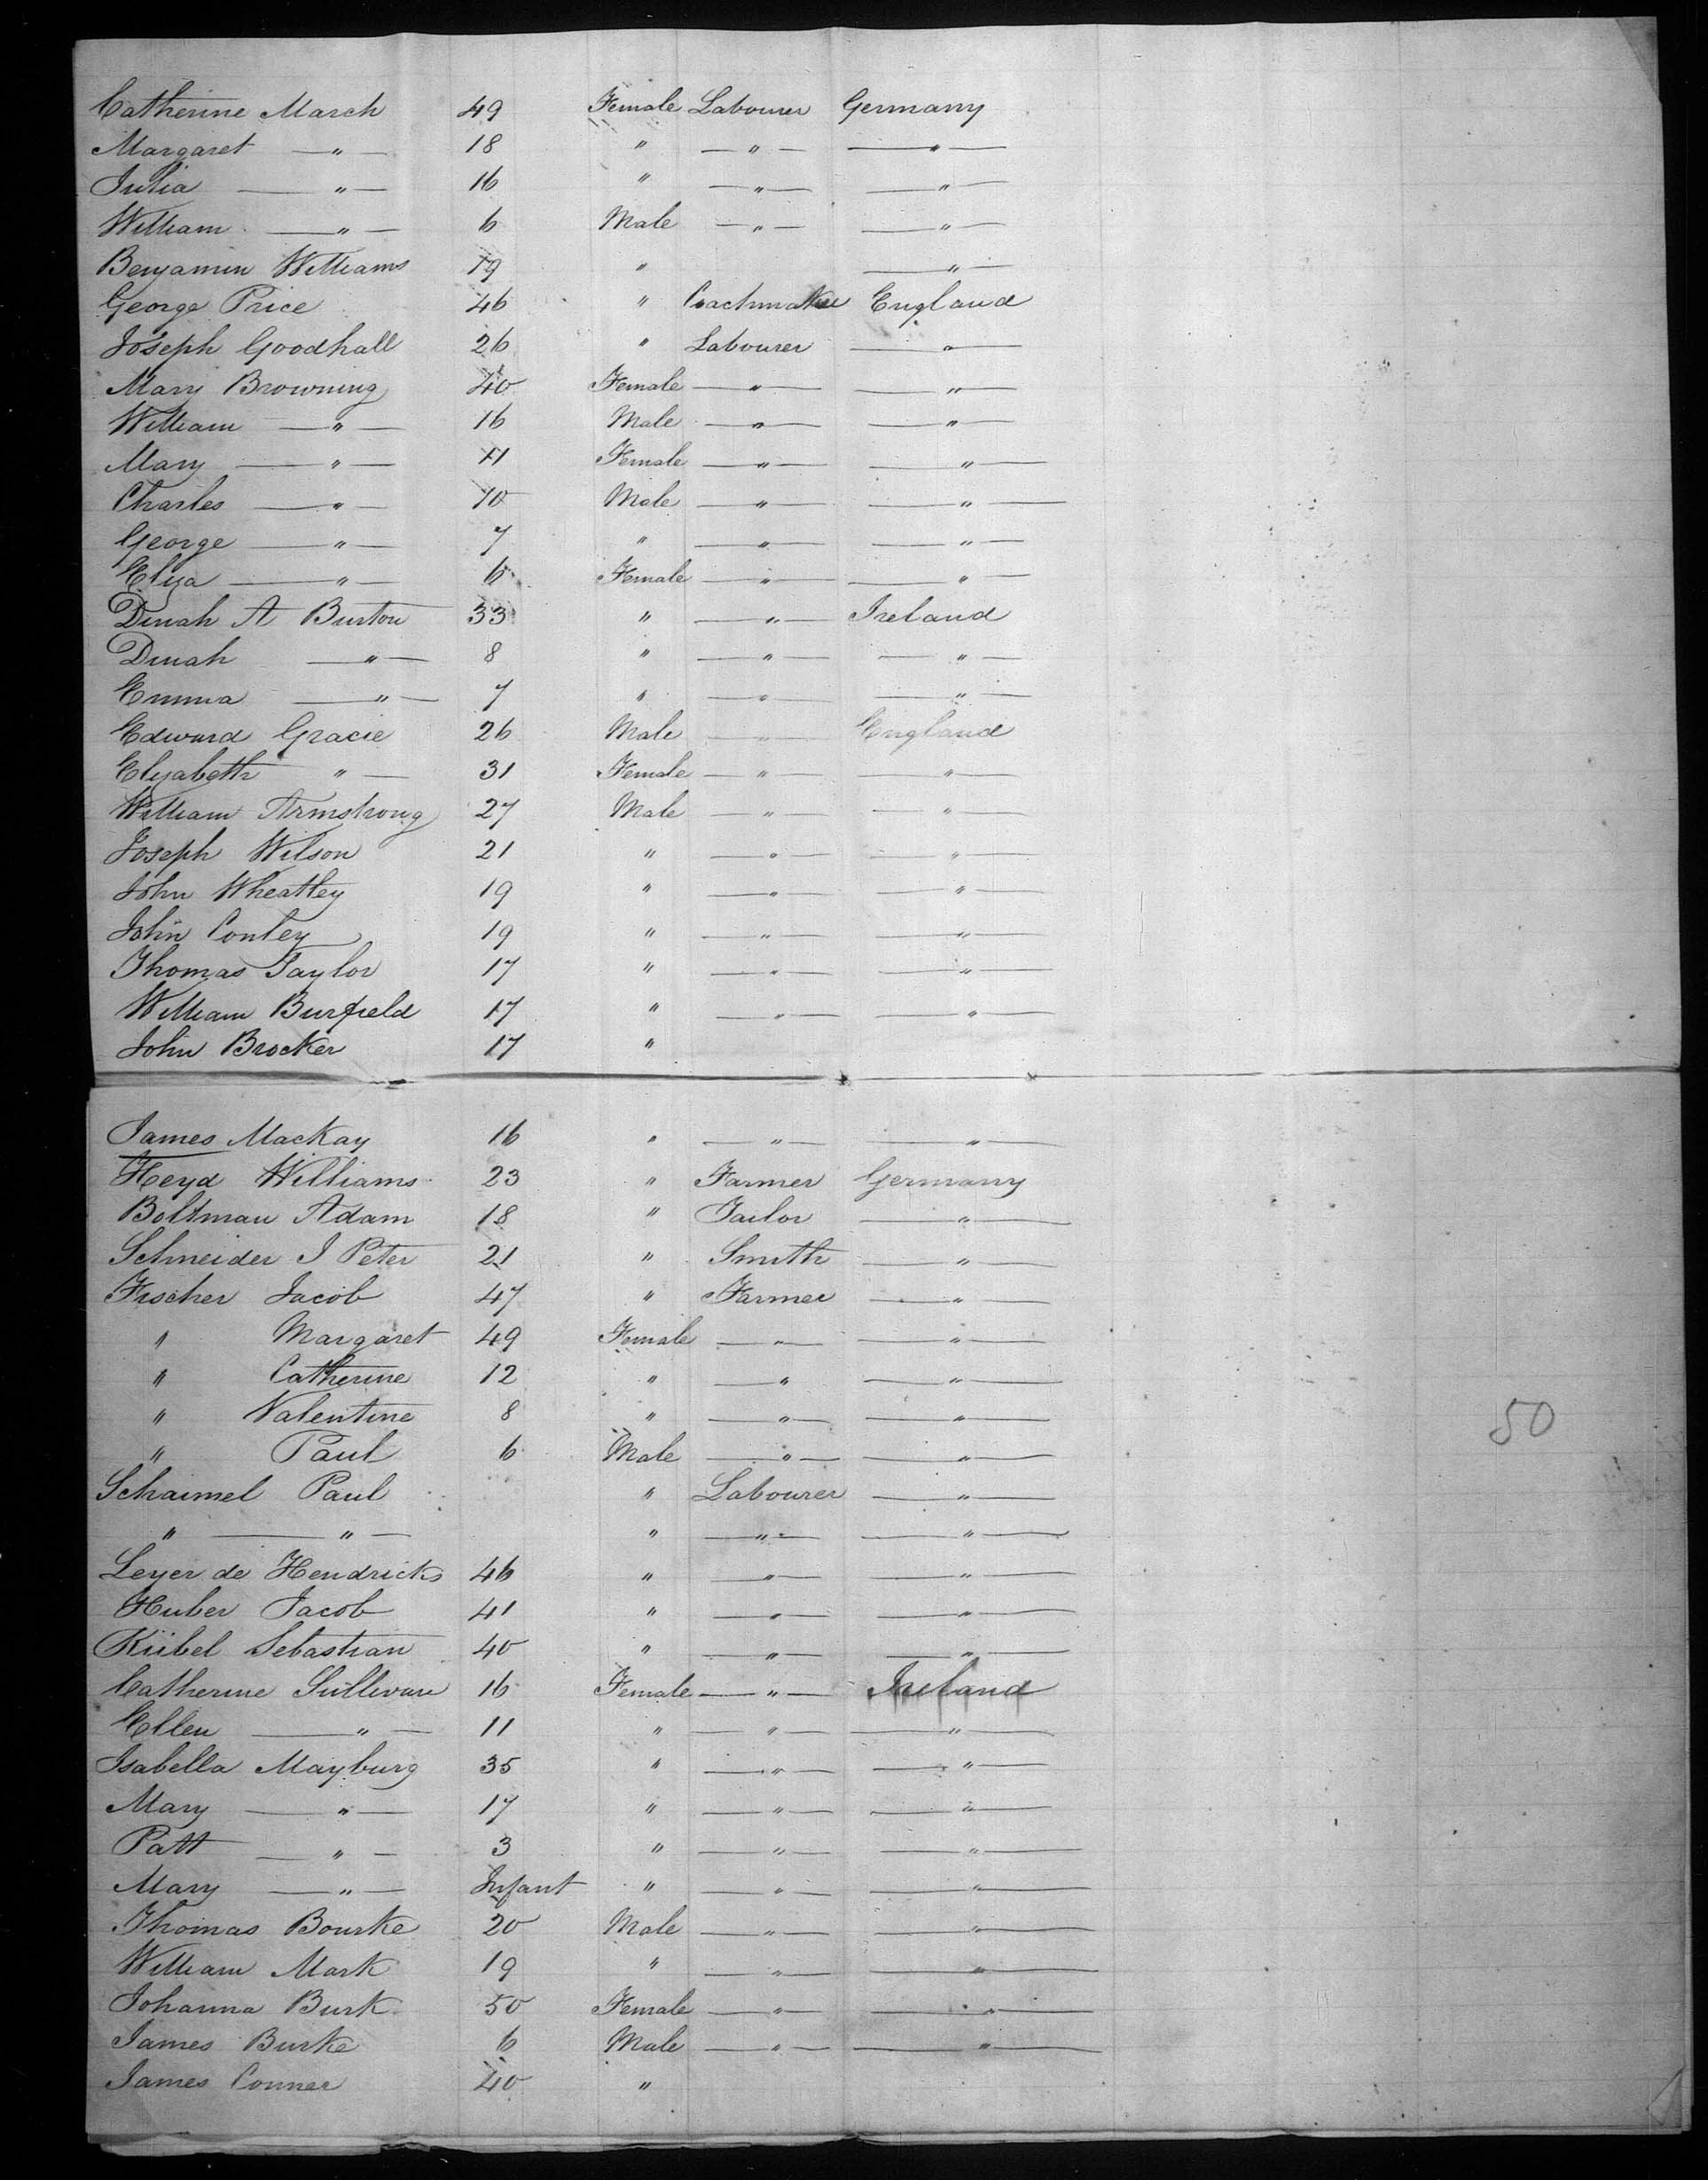 Catherine March 49 Female Labourer Germany
Margaret — " — 18 " — " — — " —
Julia — " — 16 " — " — — " —
William — " — 6 Male — " — — " —
Benjamin Williams 19 " — " —
George Price 46 " Coachmaker England
Joseph Goodhall 26 " Labourer — " —
Mary Browning 40 Female — " — — " —
William — " — 16 Male — " — — " —
Mary — " — 11 Female — " — — " —
Charles — " — 10 Male — " — — " —
George — " — 7 " — " — — " —
Eliza — " — 6 Female — " — — " —
Dinah A Burton 33 " — " — Ireland
Dinah — " — 8 " — " — — " —
Emma — " — 7 " — " — — " —
Edward Gracie 26 Male — " — England
Elizabeth " — 31 Female — " — — " —
William Armstrong 27 Male — " — — " —
Joseph Wilson 21 " — " — — " —
John Wheatley 19 " — " — — " —
John Conley 19 " — " — — " —
Thomas Taylor 17 " — " — — " —
William Burfield 17 " — " — — " —
John Brocker 17 "
James Mackay 16 " — " — — " —
Heyd Williams 23 " Farmer Germany
Boltman Adam 18 " Tailor — " —
Schneider J Peter 21 " Smith — " —
Fischer Jacob 47 " Farmer — " —
" Margaret 49 Female — " — — " —
" Catherine 12 " — " — — " —
" Valentine 8 " — " — — " —
" Paul 6 Male — " — — " —
Schaimel Paul " Labourer — " —
" — " — " — " — — " —
Leyer de Hendricks 46 " — " — — " —
Huber Jacob 41 " — " — — " —
Kübel Sebastian 40 " — " — — " —
Catherine Sullivan 16 Female — " — Ireland
Ellen — " — 11 " — " — — " —
Isabella Mayburg 35 " — " — — " —
Mary — " — 17 " — " — — " —
Patt — " — 3 " — " — — " —
Mary — " — Infant " — " — — " —
Thomas Bourke 20 Male — " — — " —
William Mark 19 " — " — — " —
Johanna Burk 50 Female — " — — " —
James Burke 6 Male — " — — " —
James Conner 40 "
50